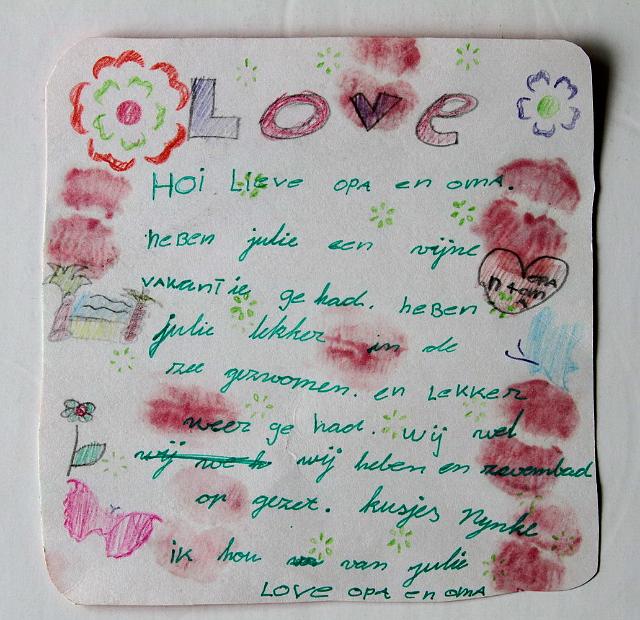 Love
Hoi Lieve opa en oma.
heben julie een vijne
vakantie ge had. heben
opa
n + om
a
julie lekker in de
zee gezwomen. en Lekker
weer ge had. wij wel
wij heben en zwembad
op gezet. kusjes Nynke
ik hou van julie
LOVE opa en oma